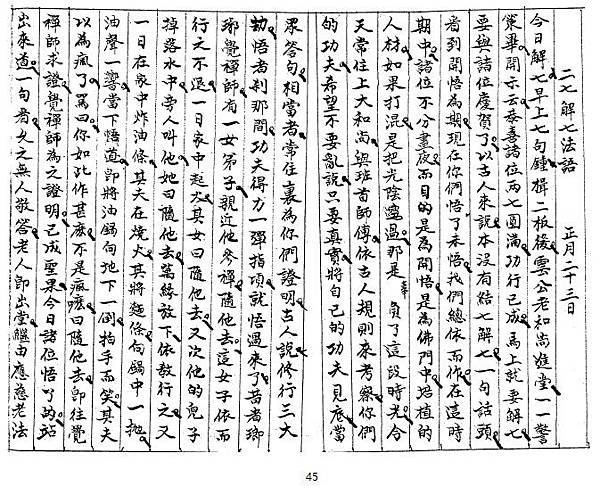 二七解七法語　正月二十三日
今日解七早上七句鐘楫二板後雲公老和尚進堂一一警
策畢開示云恭喜諸位兩七圓滿功行已成馬上就要解七
要與諸位慶賀了以古人來說本沒有結七解七一句話頭
看到開悟為期現在你們悟了未悟我們總依而作在這時
期中諸位不分晝夜而目的是為開悟是為佛門中培植的
人材如果打混是把光陰空過那是辜負了這段時光今
天常住上大和尚與班首師傅依古人規則來考察你們
的功夫希望不要亂說只要真實將自己的功夫見底當
眾答句相當者常住裏為你們證明古人說修行三大
劫悟者剎那間功夫得力一彈指頃就悟過來了昔者瑯
琊覺禪師有一女弟子親近他參禪隨他去這女子依而
行之不退一日家中起火其女曰隨他去又次他的兒子
掉落水中旁人叫他她曰隨他去萬緣放下依教行之又
一日在家中炸油條其夫在燒火其將麵條向鍋中一拋
油聲一響當下悟道即將油鍋向地下一倒拍手而笑其夫
以為瘋了罵曰你如此作甚麼不是瘋麼曰隨他去即往覺
禪師求證覺禪師為之證明已成聖果今日諸位悟了的站
出來道一句者久之無人敢答老人即出堂繼由應慈老法
45